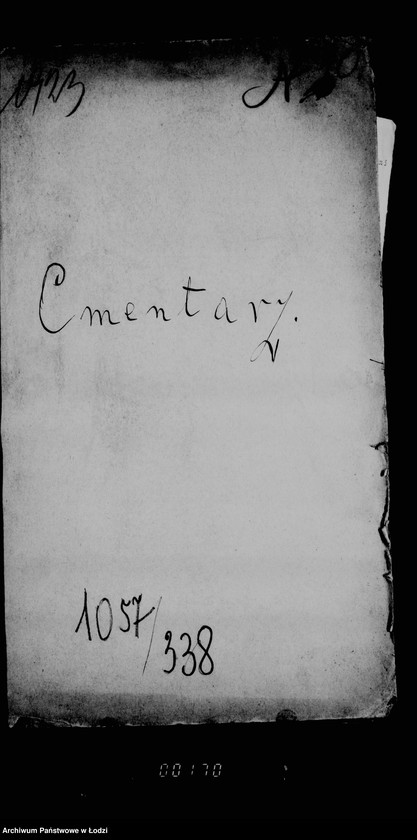 Cmentarz.
1057/338
00170
Archiwum Państwowe w Łodzi